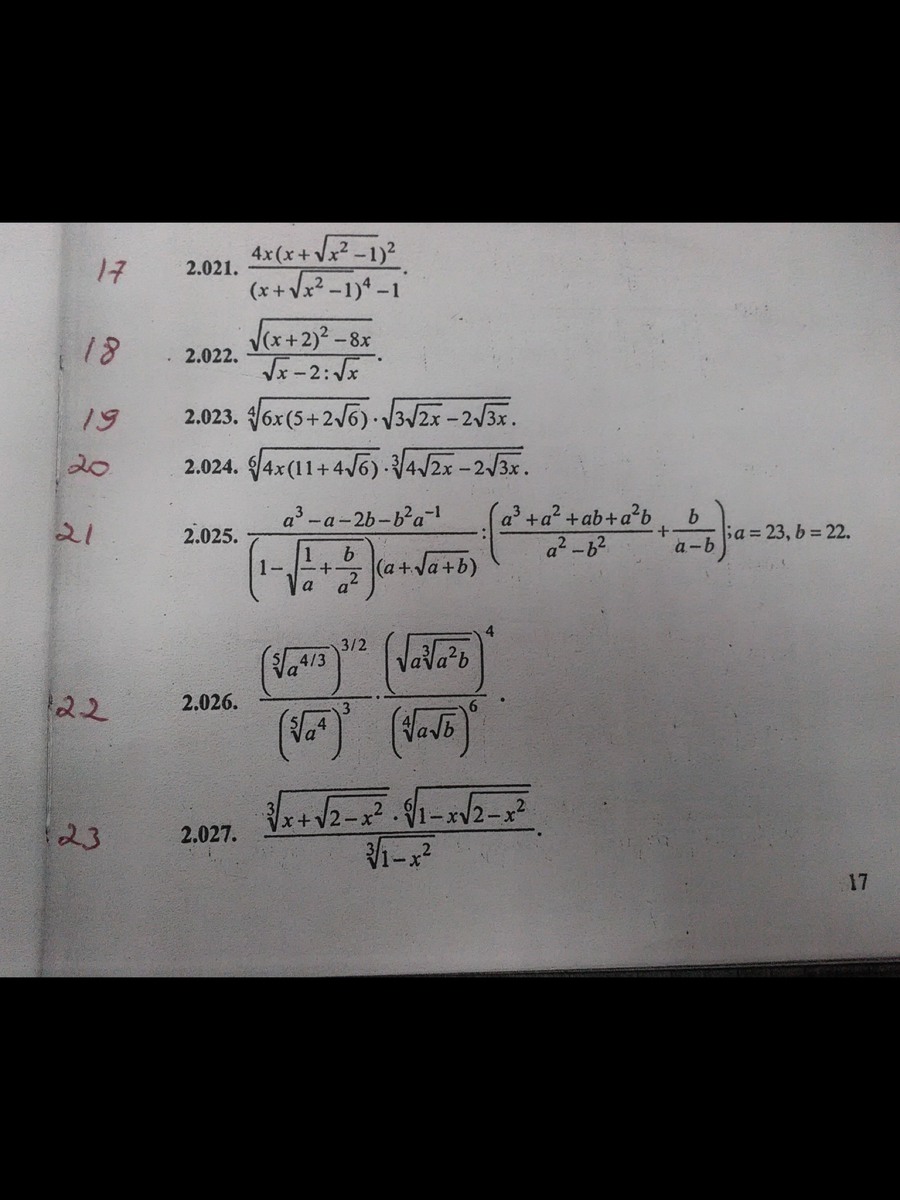 17 2.021. \frac{4x(x+\sqrt{x^2-1})^2}{(x+\sqrt{x^2-1})^4-1}.
18 2.022. \frac{\sqrt{(x+2)^2-8x}}{\sqrt{x}-2:\sqrt{x}}.
19 2.023. \sqrt[4]{6x(5+2\sqrt{6})}·\sqrt{3\sqrt{2x}-2\sqrt{3x}}.
20 2.024. \sqrt[6]{4x(11+4\sqrt{6})}·\sqrt[3]{4\sqrt{2x}-2\sqrt{3x}}.
21 2.025. \frac{a^3-a-2b-b^2a^{-1}}{\left(1-\sqrt{\frac{1}{a}+\frac{b}{a^2}}\right)(a+\sqrt{a+b})}:\left(\frac{a^3+a^2+ab+a^2b}{a^2-b^2}+\frac{b}{a-b}\right); a=23, b=22.
22 2.026. \frac{\left(\sqrt[5]{a^{4/3}}\right)^{3/2}}{\left(\sqrt[5]{a^4}\right)^3}·\frac{\left(\sqrt{a\sqrt[3]{a^2b}}\right)^4}{\left(\sqrt[4]{a\sqrt{b}}\right)^6}.
23 2.027. \frac{\sqrt[3]{x+\sqrt{2-x^2}}·\sqrt[6]{1-x\sqrt{2-x^2}}}{\sqrt[3]{1-x^2}}.
17